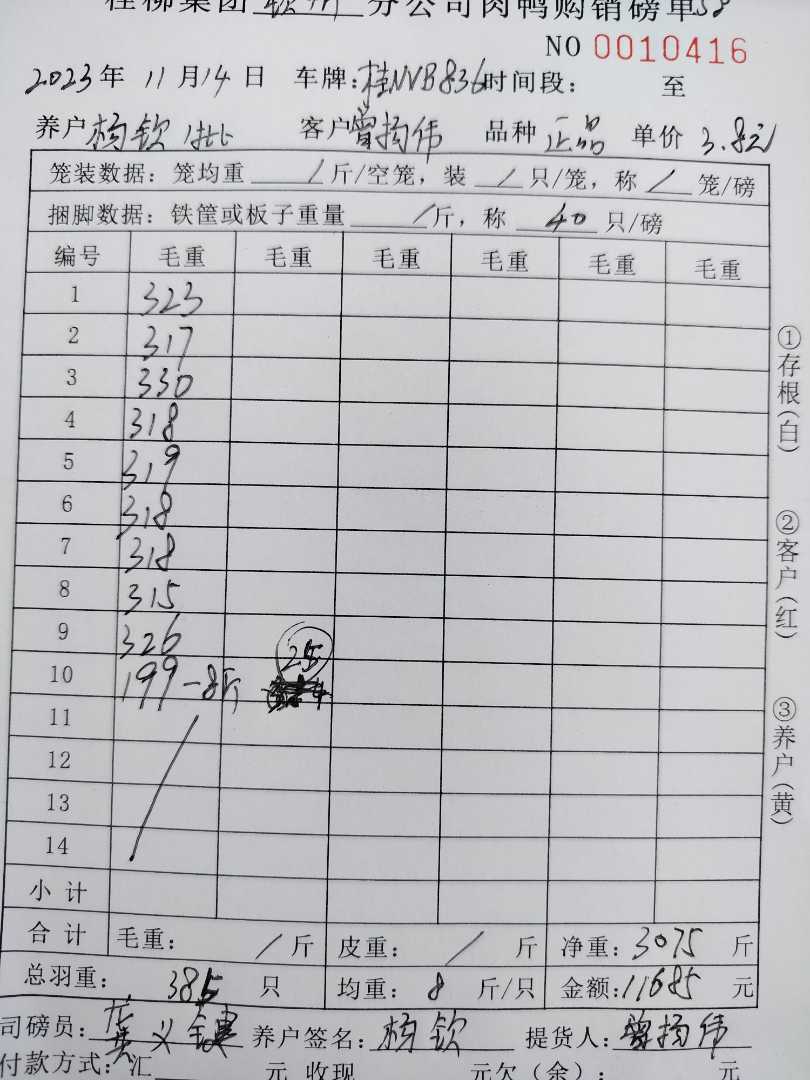 桂柳集团 钦州 分公司肉鸭购销磅单58
NO 0010416
2023年 11月14日 车牌:桂NVB836时间段: 至
养户 杨钦 1批 客户 曾扬伟 品种 正品 单价 3.8元
笼装数据:笼均重 / 斤/空笼,装 / 只/笼,称 / 笼/磅
捆脚数据:铁筐或板子重量 / 斤,称 40 只/磅
编号 毛重 毛重 毛重 毛重 毛重 毛重
1 323
2 317
3 330
4 318
5 319
6 318
7 318
8 315
9 326
10 199-8斤 25
11
12
13
14
小计
合计 毛重: / 斤 皮重: / 斤 净重:3075 斤
总羽重: 385 只 均重: 8 斤/只 金额:11685 元
司磅员: 养户签名:杨钦 提货人:曾扬伟
付款方式:汇 元 收现 元欠(余): 元
①存根(白)
②客户(红)
③养户(黄)